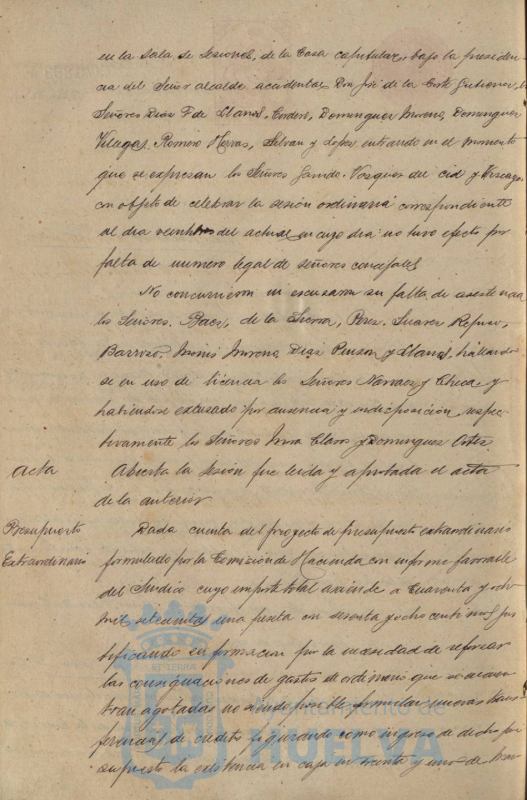 en la Sala de Sesiones, de la Casa capitular, bajo la presiden-
cia del Señor alcalde accidental Don José de la Corte Gutierrez, los
Señores Diaz F de Llanos, Cordero, Dominguez Moreno, Dominguez
Villegas, Romero Herras, Selvan y Lopez entrando en el momento
que se expresan los Señores Garrido, Vazquez del Cid y Vizcaya
con objeto de celebrar la sesión ordinaria correspondiente
al dia veintitres del actual en cuyo dia no tuvo efecto por
falta de numero legal de señores concejales
No concurrieron ni escusaron su falta de asistencia
los Señores, Baez, de la Sierra, Perez, Suarez
Barroso, Moreno, Diaz Pinzon y Llanos, hallando-
se en uso de licencia los Señores Narvaez y Checa y
habiendose escusado por ausencia y indisposición respec-
tivamente los Señores Mora Claros y Dominguez Ortiz
Acta Abierta la sesión fue leida y aprobada el acta
de la anterior
Presupuesto Dada cuenta del proyecto de presupuesto extraordinario
Extraordinario formulado por la Comisión de Hacienda con informe favorable
del Sindico cuyo importe total asciende a cuarenta y ocho
mil setecientas una peseta con sesenta y ocho centimos, jus-
tificando su formacion por la necesidad de reforzar
las consignaciones de gastos del ordinario que se encuen-
tran agotadas no siendo posible formular nuevas trans-
ferencias de credito figurando como ingreso de dicho pre-
supuesto la existencia en caja en treinta y uno de
Ayuntamiento de
HUELVA